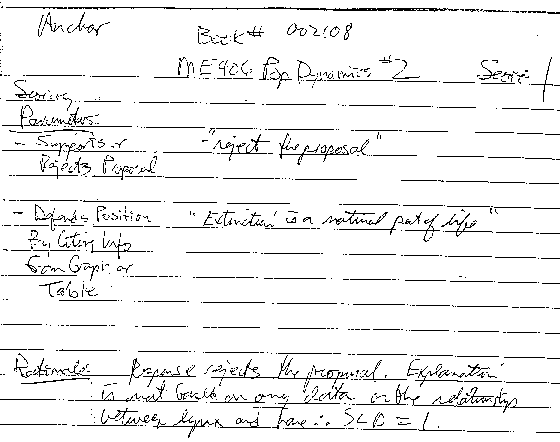 Anchor
Book # 002108
ME406 Pop Dynamics #2 Score 1
Scoring
Parameters:
- Supports or - "reject the proposal"
Rejects Proposal
- Defends Position "Extinction is a natural part of life"
By Citing Info
from Graph or
Table
Rationale: Response rejects the proposal. Explanation
is not based on any data or the relationship
between lynx and hare ∴ = 1.